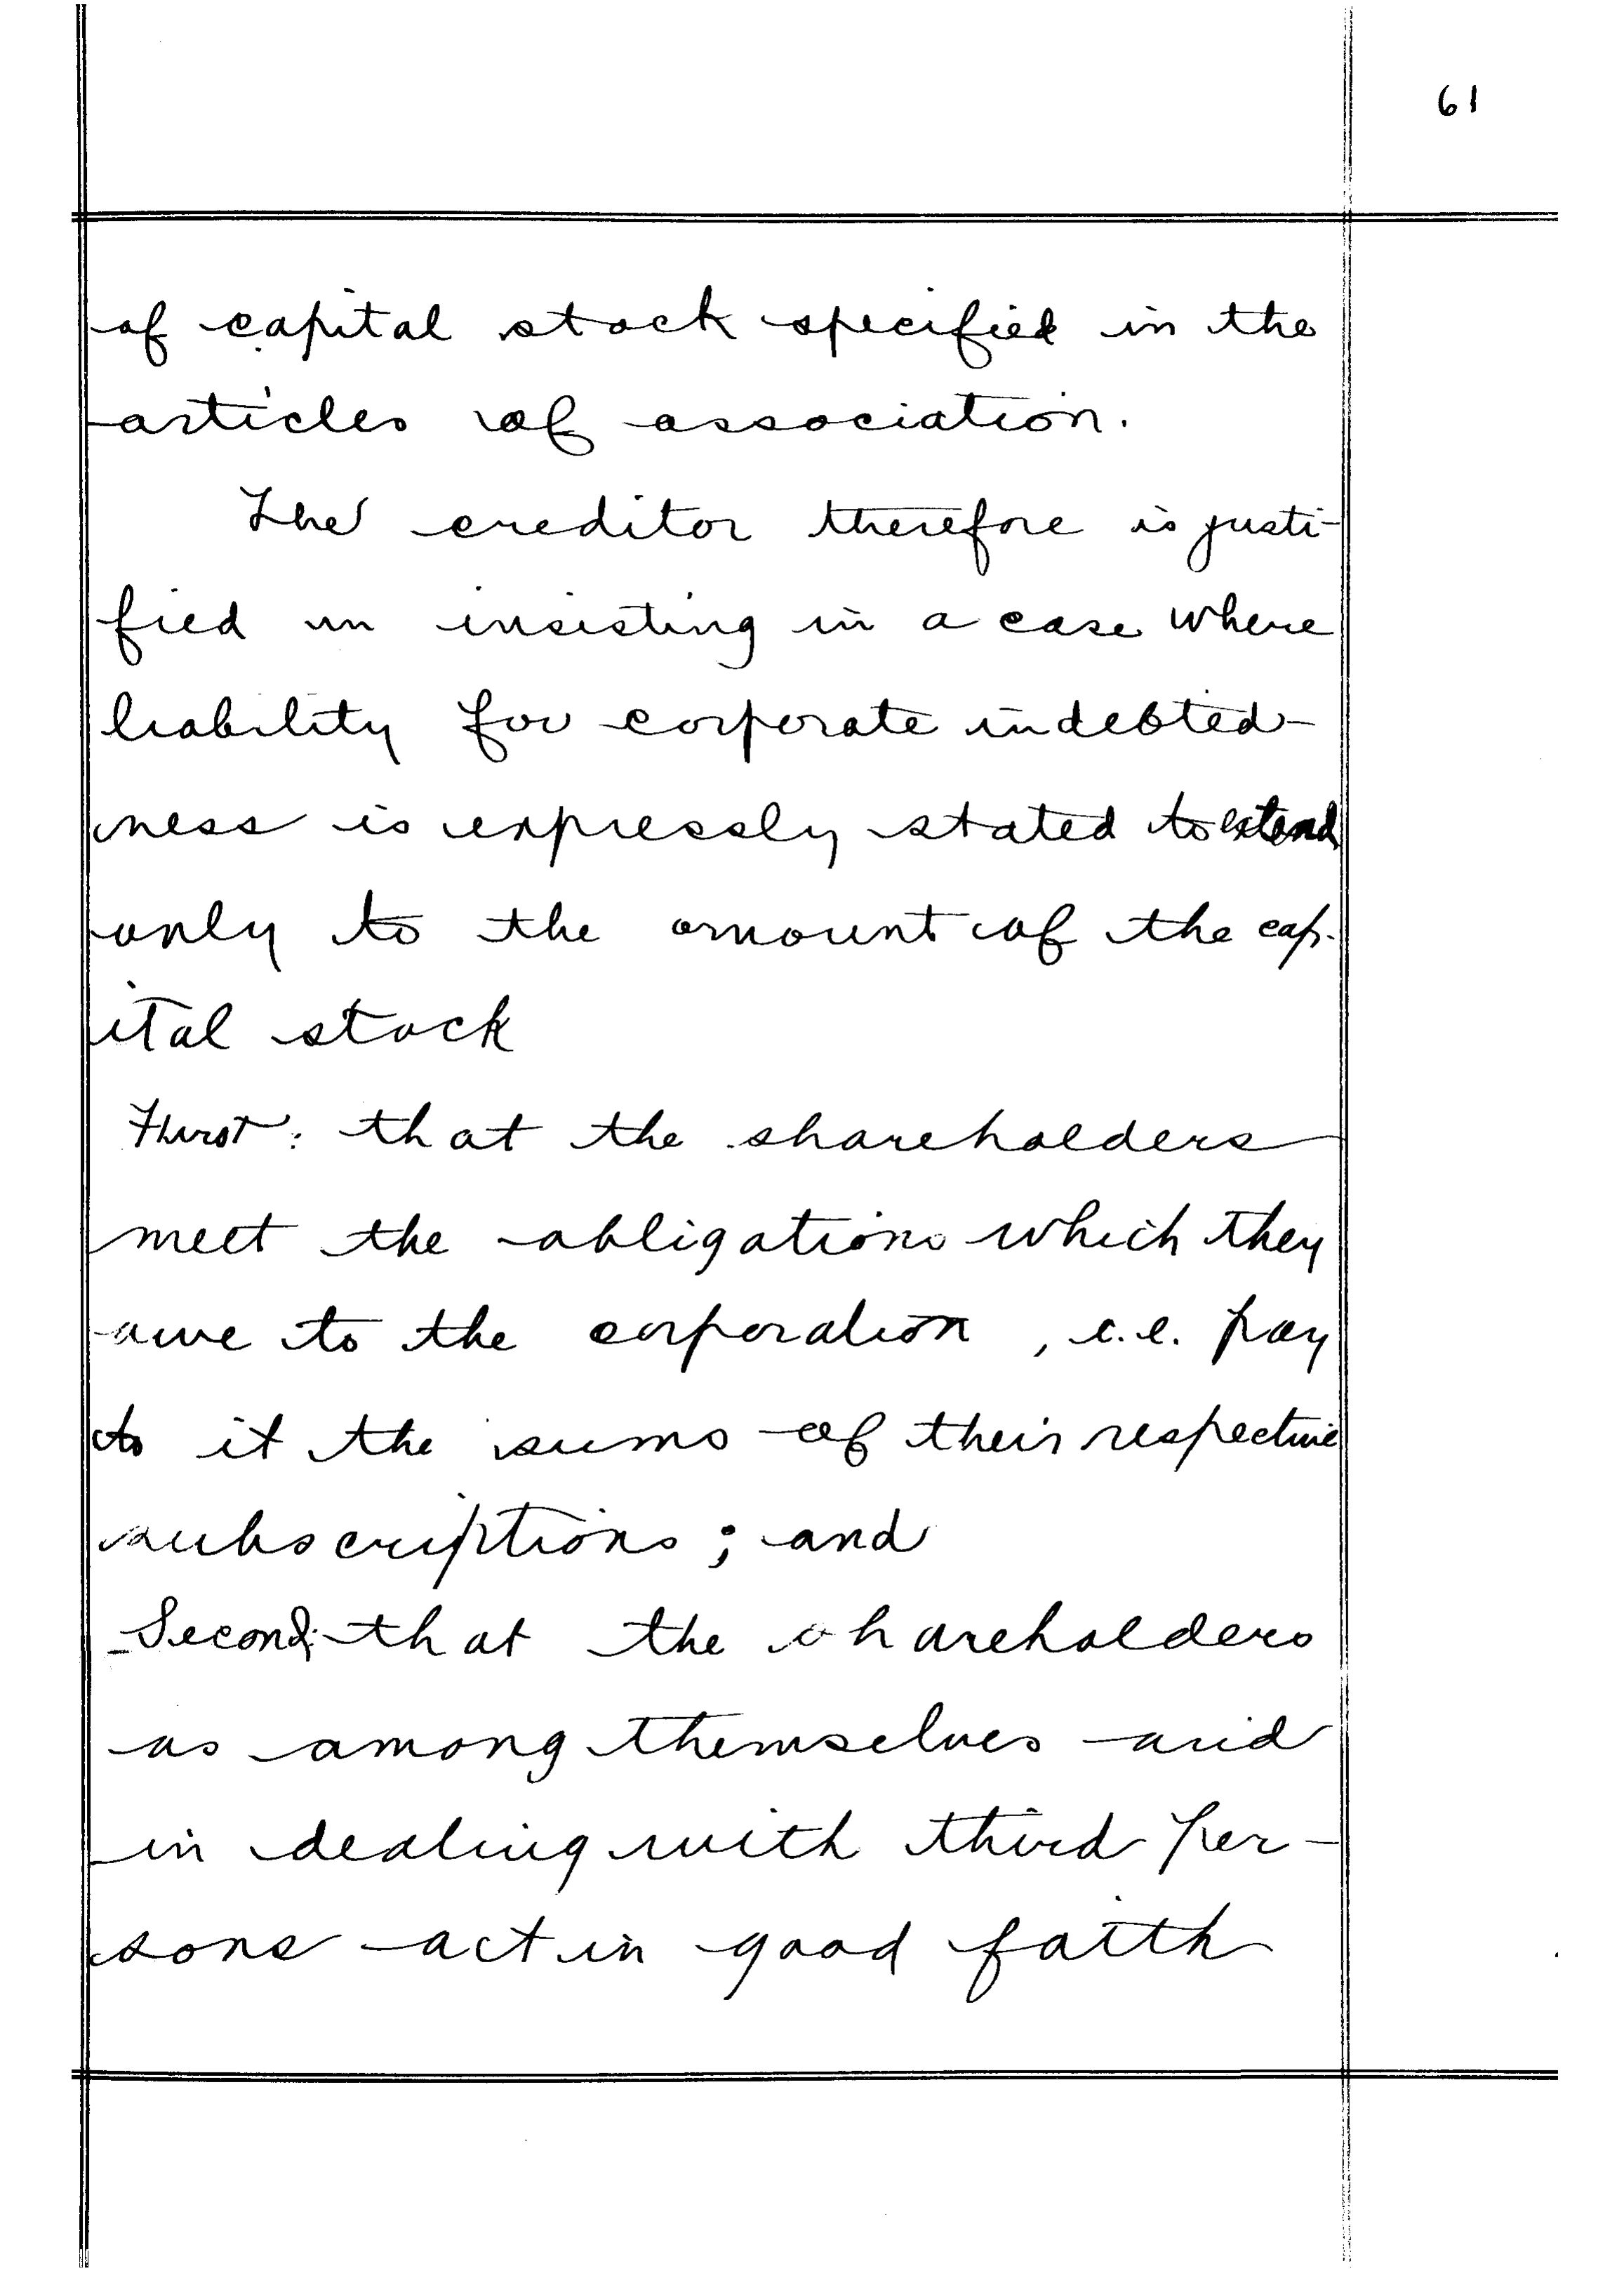 61
of capital stock specified in the
articles of association.
The creditor therefore is justi-
fied in insisting in a case where
liability for corporate indebted-
ness is expressly stated to extend
only to the amount of the cap-
ital stock
First: that the shareholders
meet the obligations which they
owe to the corporation, i.e. pay
to it the sums of their respective
subscriptions; and
Second: that the shareholders
as among themselves and
in dealing with third per-
sons act in good faith